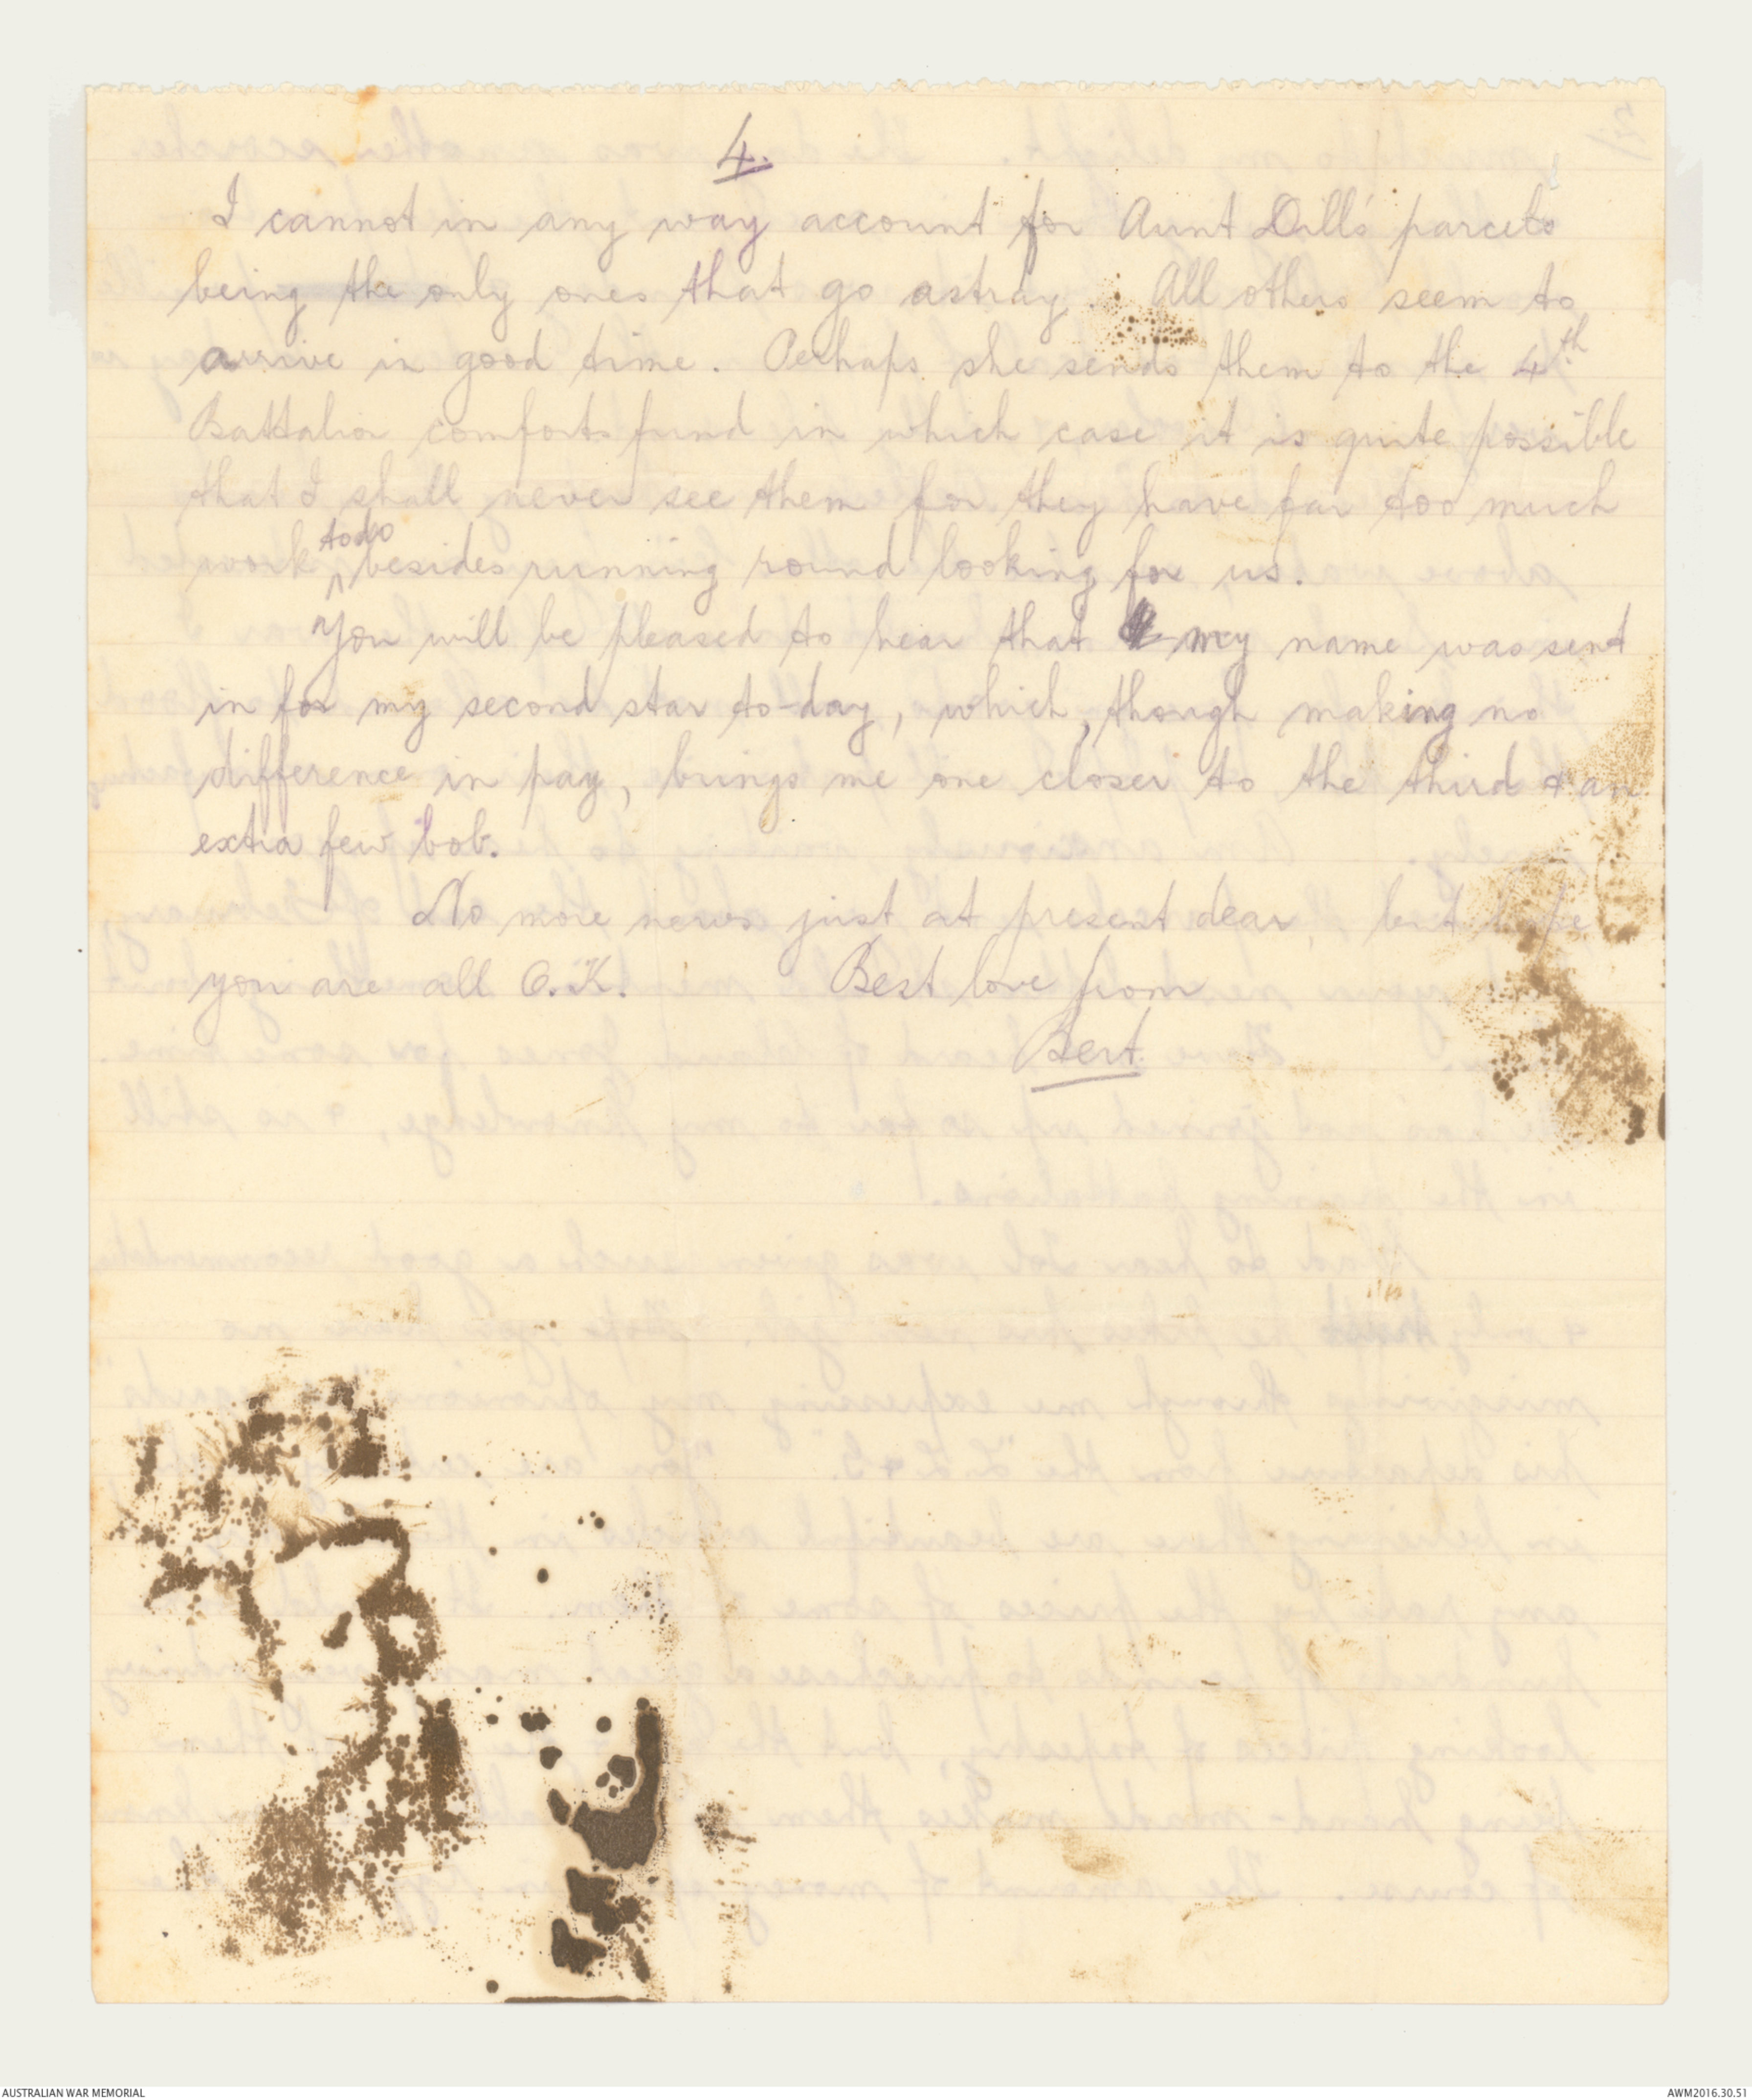 4.
I cannot in any way account for Aunt Dill's parcels
being the only ones that go astray. All others seem to
arrive in good time. Perhaps she sends them to the 4th
Battalion comforts fund in which case it is quite possible
that I shall never see them for they have far too much
work to do besides running round looking for us.
You will be pleased to hear that my name was sent
in for my second star to-day, which, though making no
difference in pay, brings me one closer to the third & an
extra few bob.
No more news just at present dear, but hope
you are all O.K. Best love from
Bert.
AUSTRALIAN WAR MEMORIAL
AWM2016.30.51